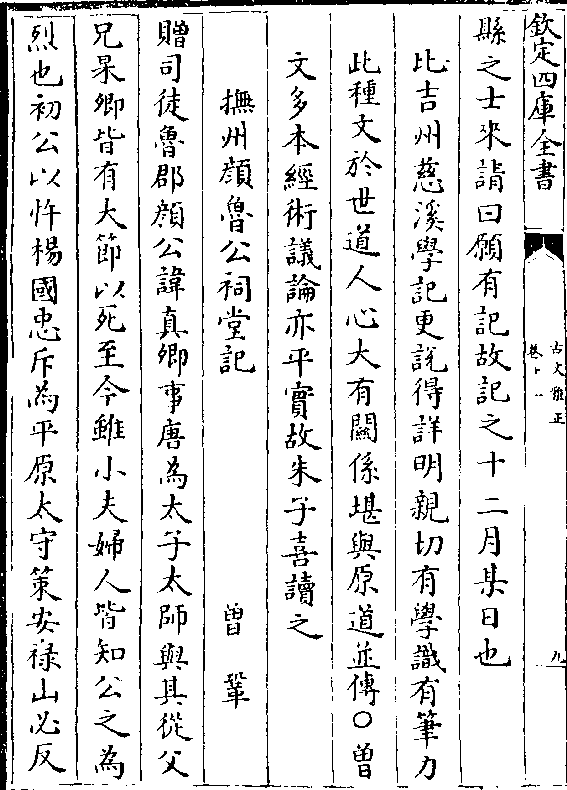 欽定四庫全書
古文雅正
卷十一
九
縣之士來請曰願有記故記之十二月某日也
比吉州慈溪學記更說得詳明親切有學識有筆力
此種文於世道人心大有關係堪與原道並傳○曾
文多本經術議論亦平實故朱子喜讀之
撫州顔魯公祠堂記
曾鞏
贈司徒魯郡顔公諱真卿事唐為太子太師與其從父
兄杲卿皆有大節以死至今雖小夫婦人皆知公之為
烈也初公以忤楊國忠斥為平原太守策安祿山必反